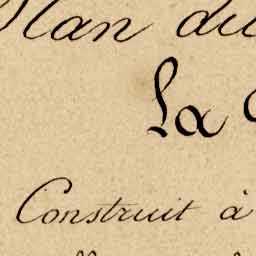 Plan du
La
Construit à